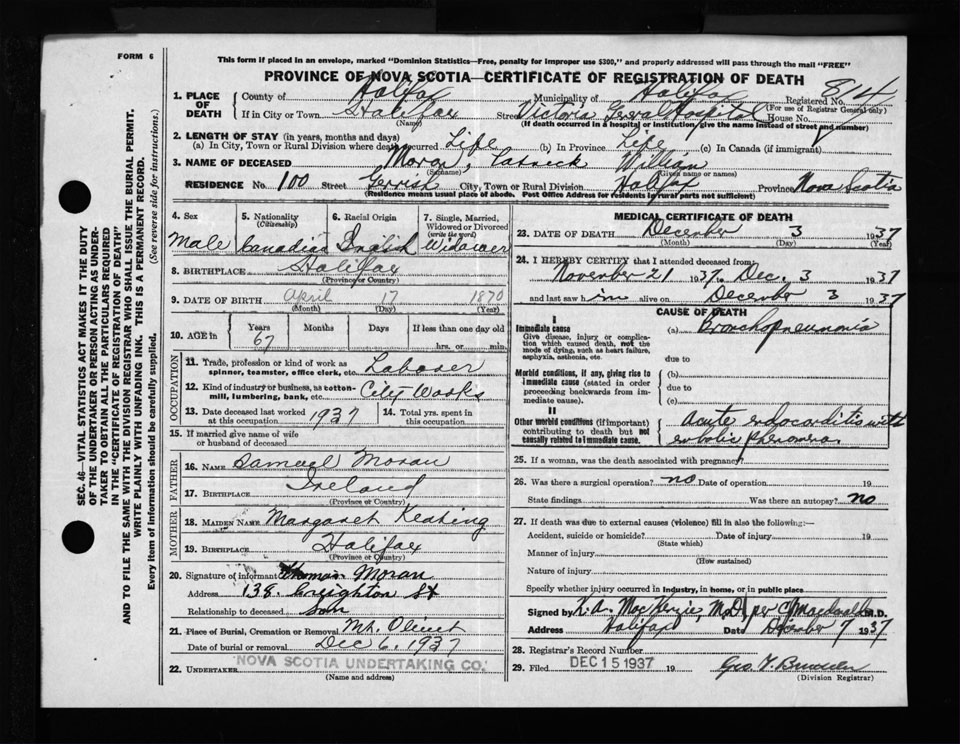 FORM 6
This form if placed in an envelope, marked "Dominion Statistics—Free, penalty for improper use $300," and properly addressed will pass through the mail "FREE"
PROVINCE OF NOVA SCOTIA—CERTIFICATE OF REGISTRATION OF DEATH
814
1. PLACE OF DEATH
County of Halifax Municipality of Halifax Registered No.
(For use of Registrar General only)
If in City or Town Halifax Street Victoria General Hospital House No.
(Name) (If death occurred in a hospital or institution, give the name instead of street and number)
2. LENGTH OF STAY (in years, months and days)
(a) In City, Town or Rural Division where death occurred Life (b) In Province Life (c) In Canada (if immigrant)
3. NAME OF DECEASED Moran, Patrick William
(Surname) (Given name or names)
RESIDENCE No. 100 Street Gerrish City, Town or Rural Division Halifax Province Nova Scotia
(Residence means usual place of abode. Post Office Address for residents in rural parts not sufficient)
4. Sex Male
5. Nationality (Citizenship) Canadian
6. Racial Origin English
7. Single, Married, Widowed or Divorced (write the word) Widower
8. BIRTHPLACE Halifax
(Province or Country)
9. DATE OF BIRTH April 17 1870
(Month) (Day) (Year)
10. AGE in Years 67 Months Days If less than one day old
hrs. or min.
OCCUPATION
11. Trade, profession or kind of work as spinner, teamster, office clerk, etc. Laborer
12. Kind of industry or business, as cotton-mill, lumbering, bank, etc. City Works
13. Date deceased last worked at this occupation 1937
14. Total yrs. spent in this occupation.
15. If married give name of wife or husband of deceased
FATHER
16. NAME Samuel Moran
17. BIRTHPLACE Ireland
(Province or Country)
MOTHER
18. MAIDEN NAME Margaret Keating
19. BIRTHPLACE Halifax
(Province or Country)
20. Signature of informant Thomas Moran
Address 138 Creighton St
Relationship to deceased Son
21. Place of Burial, Cremation or Removal Mt. Olivet
Date of burial or removal Dec 6, 1937
22. UNDERTAKER NOVA SCOTIA UNDERTAKING CO.
(Name and address)
MEDICAL CERTIFICATE OF DEATH
23. DATE OF DEATH December 3 1937
(Month) (Day) (Year)
24. I HEREBY CERTIFY that I attended deceased from
November 21 1937 to Dec. 3 1937
and last saw him alive on December 3 1937
CAUSE OF DEATH
I
Immediate cause
Give disease, injury or complication which caused death, not the mode of dying, such as heart failure, asphyxia, asthenia, etc.
(a) Bronchopneumonia
due to
Morbid conditions, if any, giving rise to immediate cause (stated in order proceeding backwards from immediate cause).
(b)
due to
(c)
II
Other morbid conditions (if important) contributing to death but not causally related to immediate cause.
acute endocarditis with
embolic phenomena
25. If a woman, was the death associated with pregnancy?
26. Was there a surgical operation? no Date of operation 19
State findings Was there an autopsy? no
27. If death was due to external causes (violence) fill in also the following:—
Accident, suicide or homicide? Date of injury 19
(State which)
Manner of injury
(How sustained)
Nature of injury
Specify whether injury occurred in industry, in home, or in public place
Signed by K. A. MacKenzie, M.D. per C. Macdonald M.D.
Address Halifax Date December 7 1937
28. Registrar's Record Number
29. Filed DEC 15 1937 19 Geo. V.
(Division Registrar)
SEC. 46—VITAL STATISTICS ACT MAKES IT THE DUTY
OF THE UNDERTAKER OR PERSON ACTING AS UNDERTAKER
TO OBTAIN ALL THE PARTICULARS REQUIRED
IN THE "CERTIFICATE OF REGISTRATION OF DEATH"
AND TO FILE THE SAME WITH THE DIVISION REGISTRAR WHO SHALL ISSUE THE BURIAL PERMIT.
WRITE PLAINLY WITH UNFADING INK. THIS IS A PERMANENT RECORD.
Every item of information should be carefully supplied. (See reverse side for instructions.)